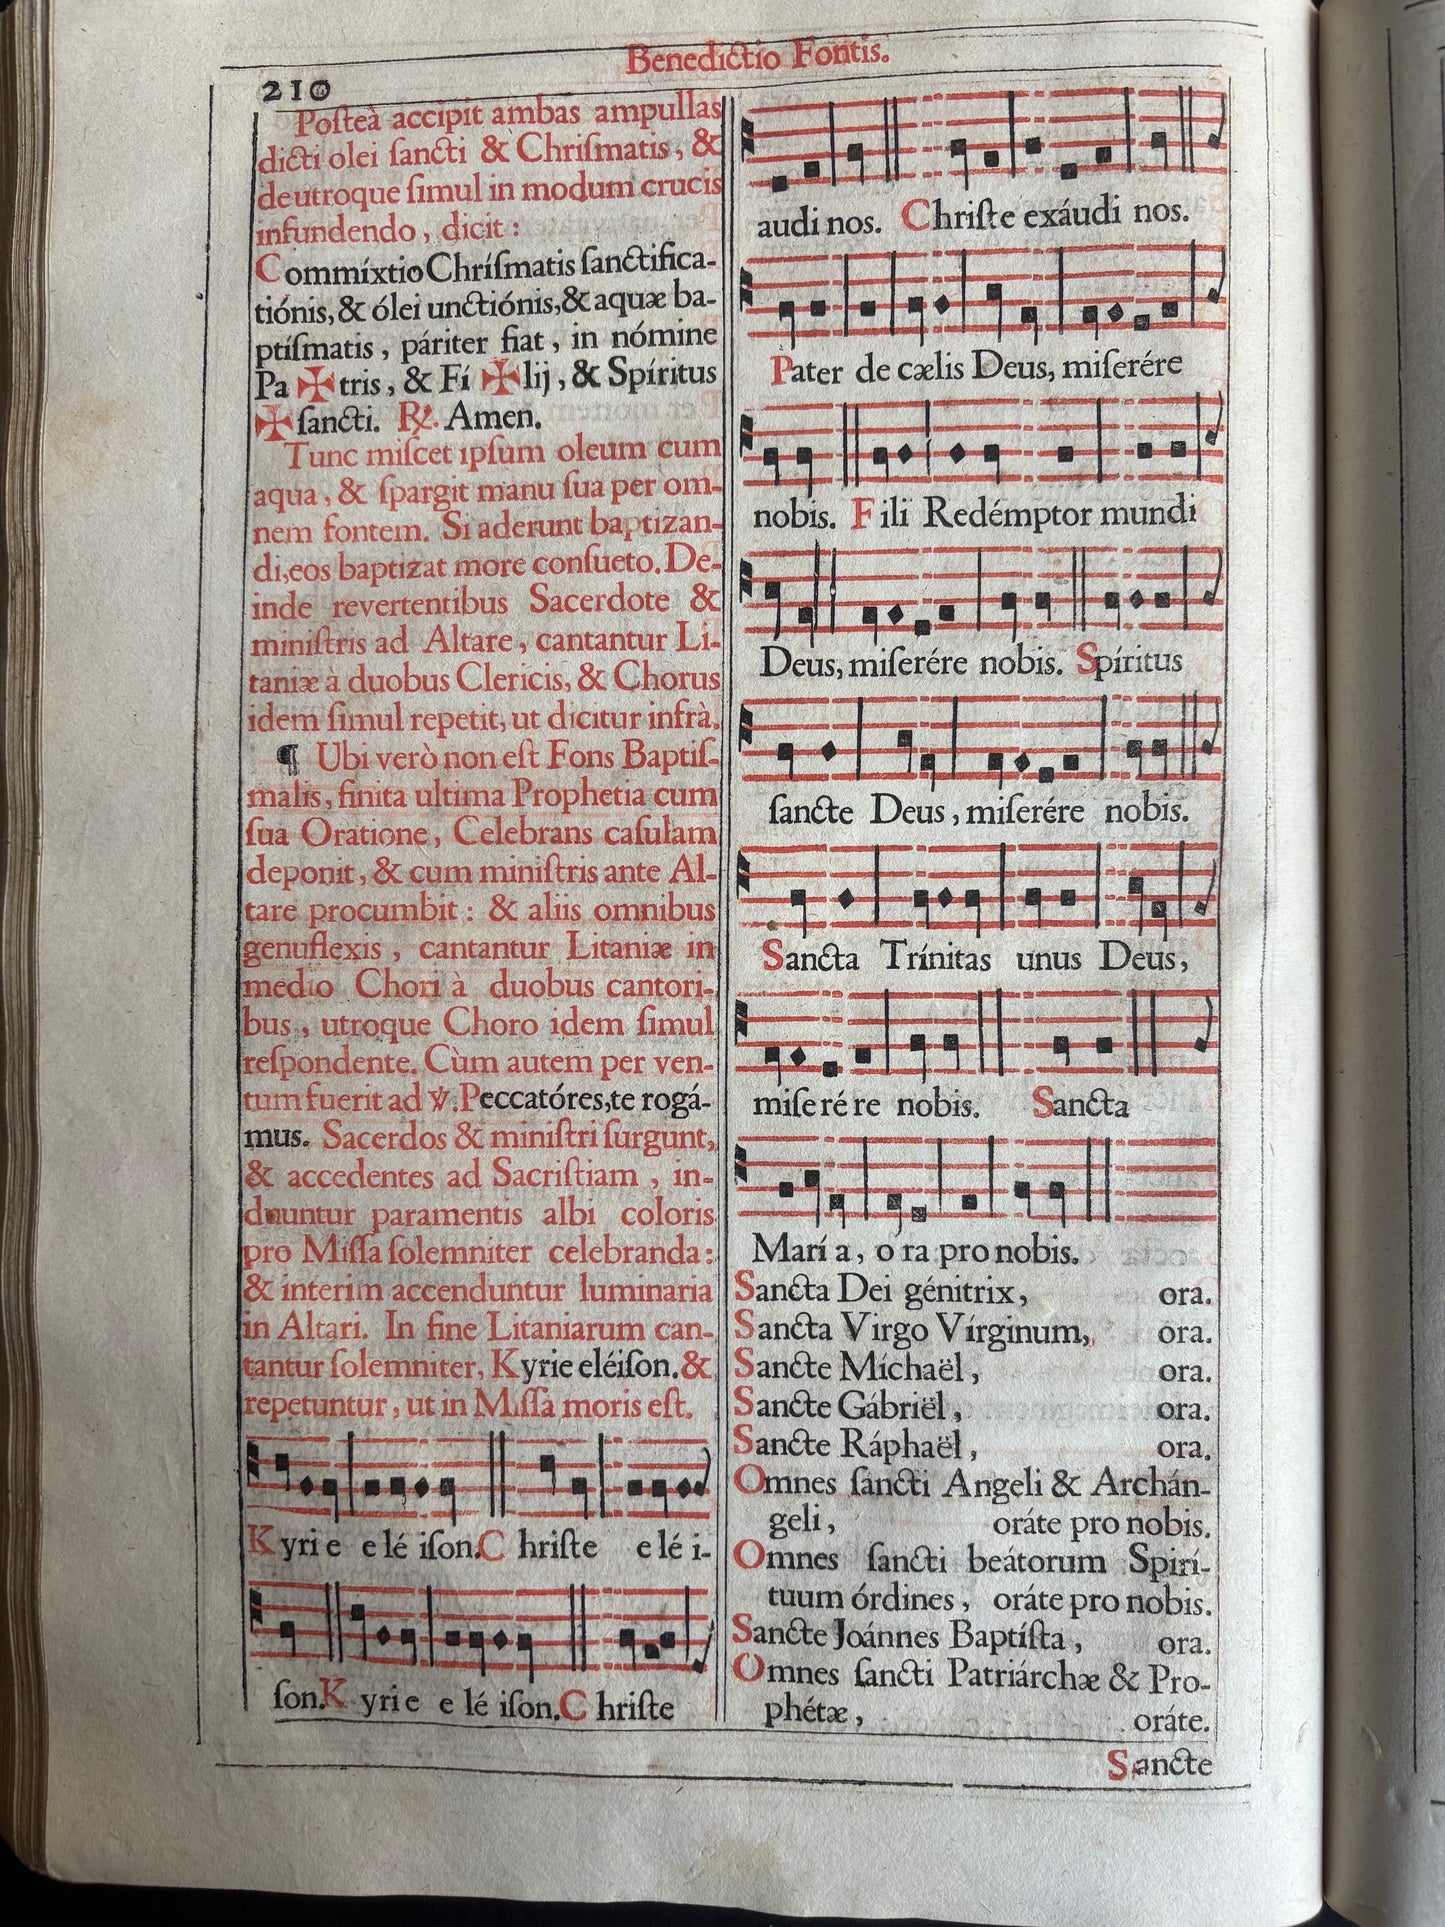 Benedictio Fontis.
210
Poſteà accipit ambas ampullas
dicti olei ſancti & Chriſmatis, &
de utroque ſimul in modum crucis
infundendo, dicit:
Commíxtio Chríſmatis ſanctifica-
tiónis, & ólei unctiónis, & aquæ ba-
ptíſmatis, páriter fiat, in nómine
Pa ✠ tris, & Fí ✠ lij, & Spíritus
✠ ſancti. ℟. Amen.
Tunc miſcet ipſum oleum cum
aqua, & ſpargit manu ſua per om-
nem fontem. Si aderunt baptizan-
di, eos baptizat more conſueto. De-
inde revertentibus Sacerdote &
miniſtris ad Altare, cantantur Li-
taniæ à duobus Clericis, & Chorus
idem ſimul repetit, ut dicitur infrà.
¶ Ubi verò non eſt Fons Baptiſ-
malis, finita ultima Prophetia cum
ſua Oratione, Celebrans caſulam
deponit, & cum miniſtris ante Al-
tare procumbit: & aliis omnibus
genuflexis, cantantur Litaniæ in
medio Chori à duobus cantori-
bus, utroque Choro idem ſimul
reſpondente. Cùm autem per ven-
tum fuerit ad ℣. Peccatóres, te rogá-
mus. Sacerdos & miniſtri ſurgunt,
& accedentes ad Sacriſtiam, in-
duuntur paramentis albi coloris
pro Miſſa ſolemniter celebranda:
& interim accenduntur luminaria
in Altari. In fine Litaniarum can-
tantur ſolemniter, Kyrie eléiſon. &
repetuntur, ut in Miſſa moris eſt.
Kyri e e lé iſon. C hriſte e lé i-
ſon. K yri e e lé iſon. C hriſte
audi nos. Chriſte exáudi nos.
Pater de cælis Deus, miſerére
nobis. F ili Redémptor mundi
Deus, miſerére nobis. Spíritus
ſancte Deus, miſerére nobis.
Sancta Trínitas unus Deus,
miſe ré re nobis. Sancta
Marí a, o ra pro nobis.
Sancta Dei génitrix, ora.
Sancta Virgo Vírginum, ora.
Sancte Míchaël, ora.
Sancte Gábriël, ora.
Sancte Ráphaël, ora.
Omnes ſancti Angeli & Archán-
geli, oráte pro nobis.
Omnes ſancti beátorum Spirí-
tuum órdines, oráte pro nobis.
Sancte Joánnes Baptíſta, ora.
Omnes ſancti Patriárchæ & Pro-
phétæ, oráte.
Sancte